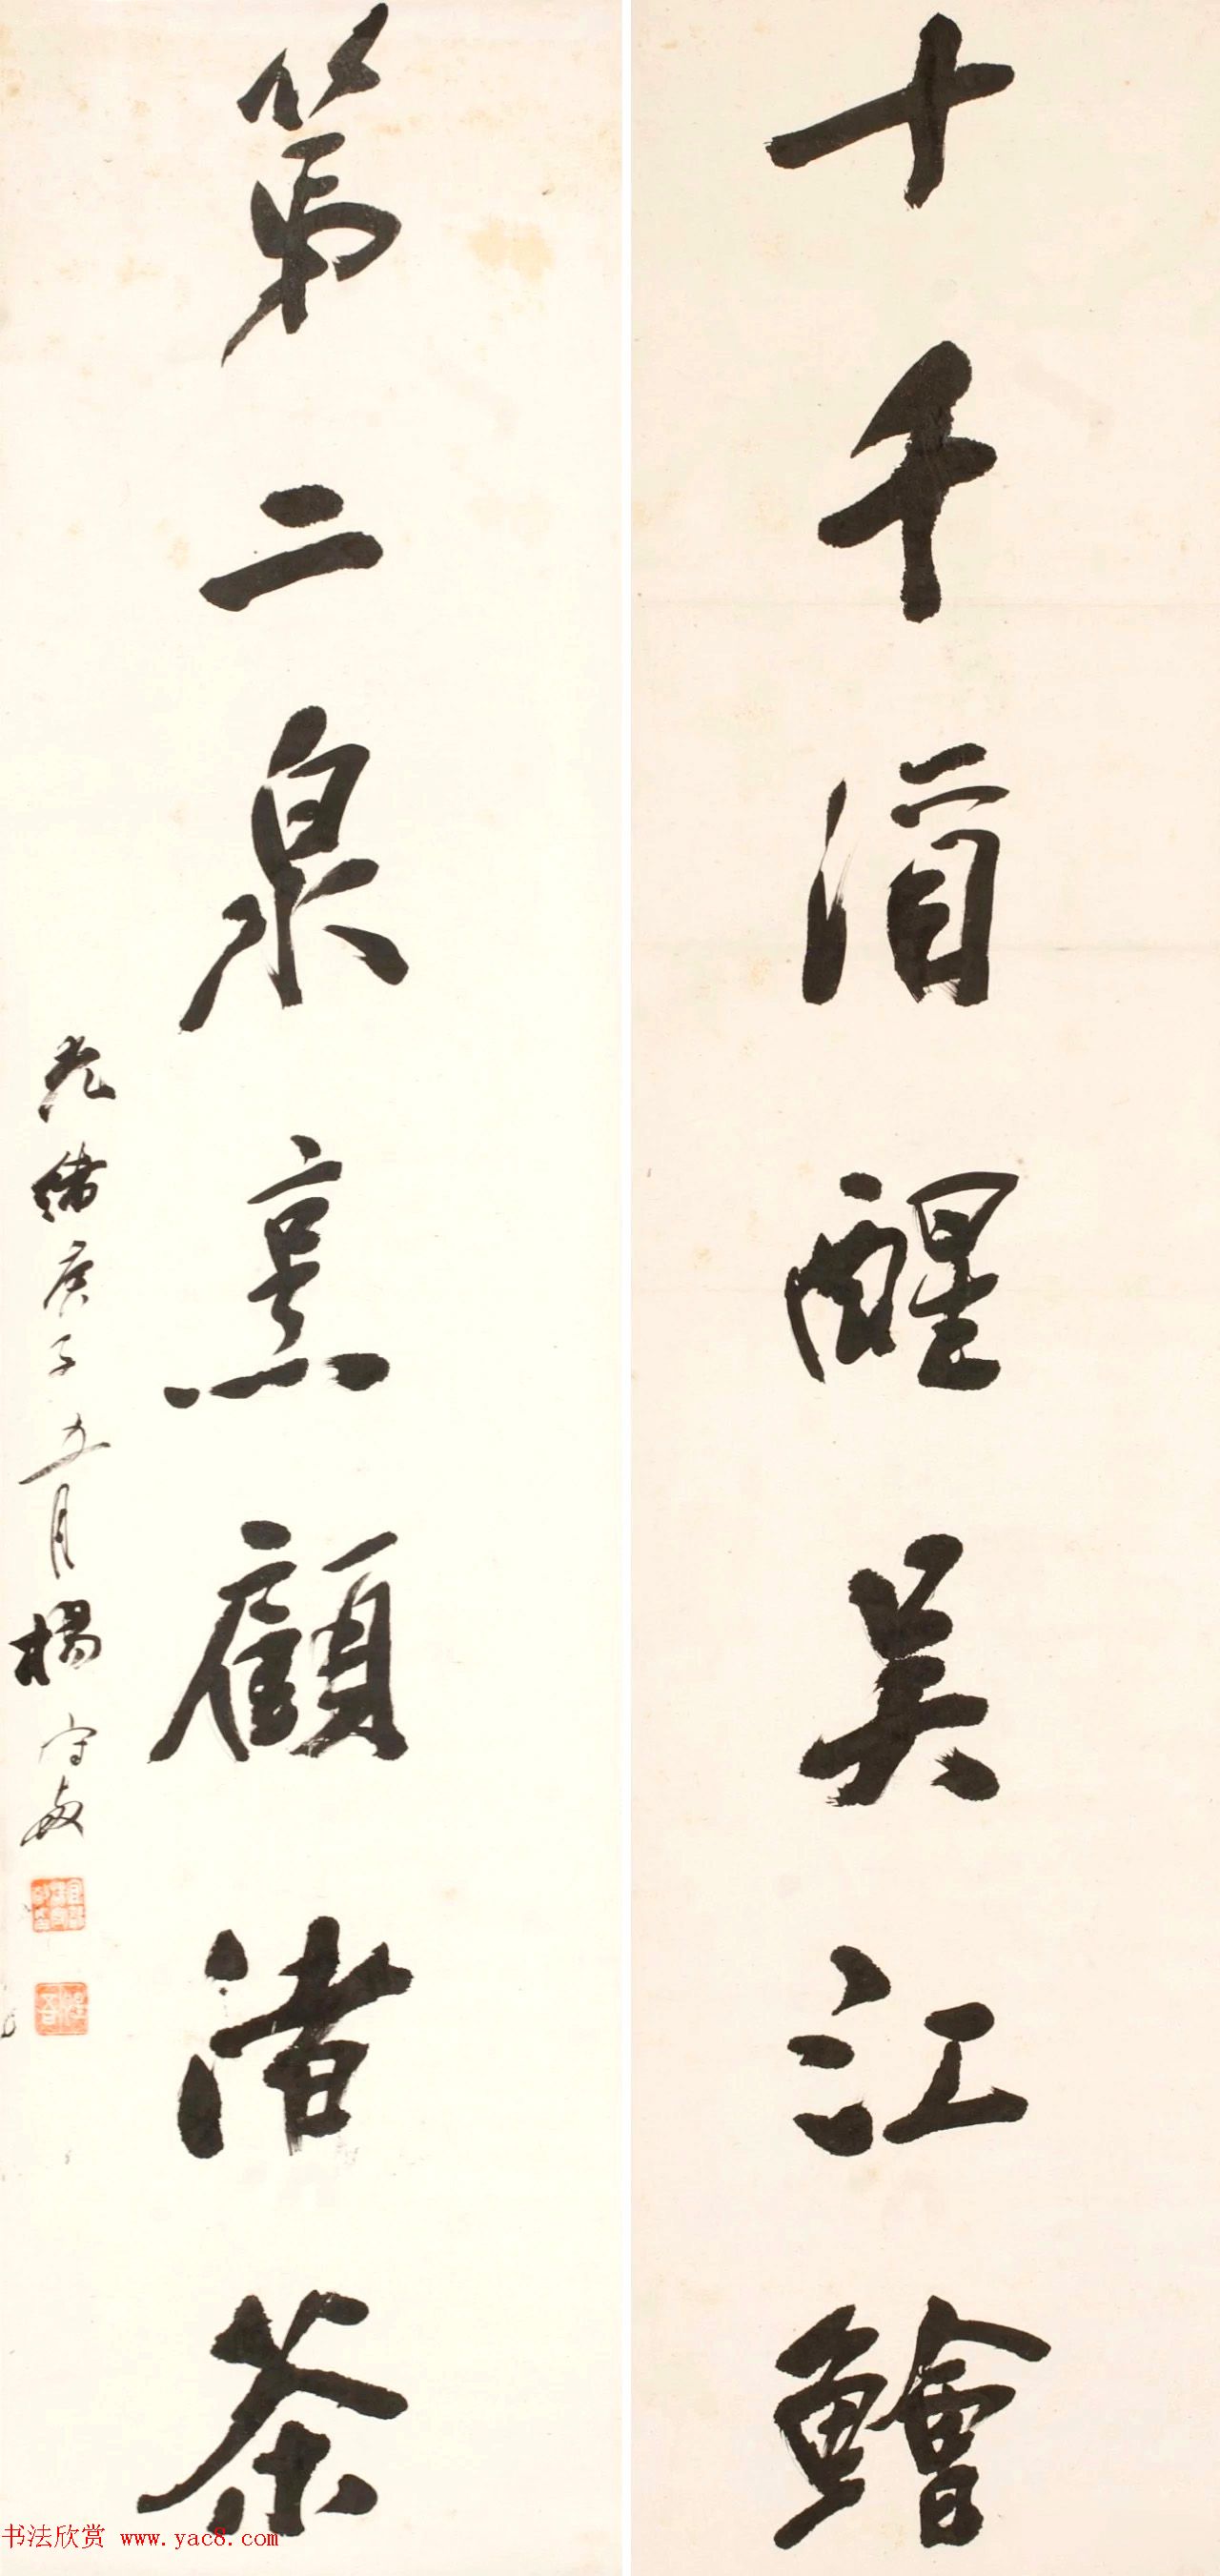 十千酒醒吳江鱠
第二泉烹顧渚茶
光緒庚子五月楊守敬
惺吾
书法欣赏 www.yac8.com